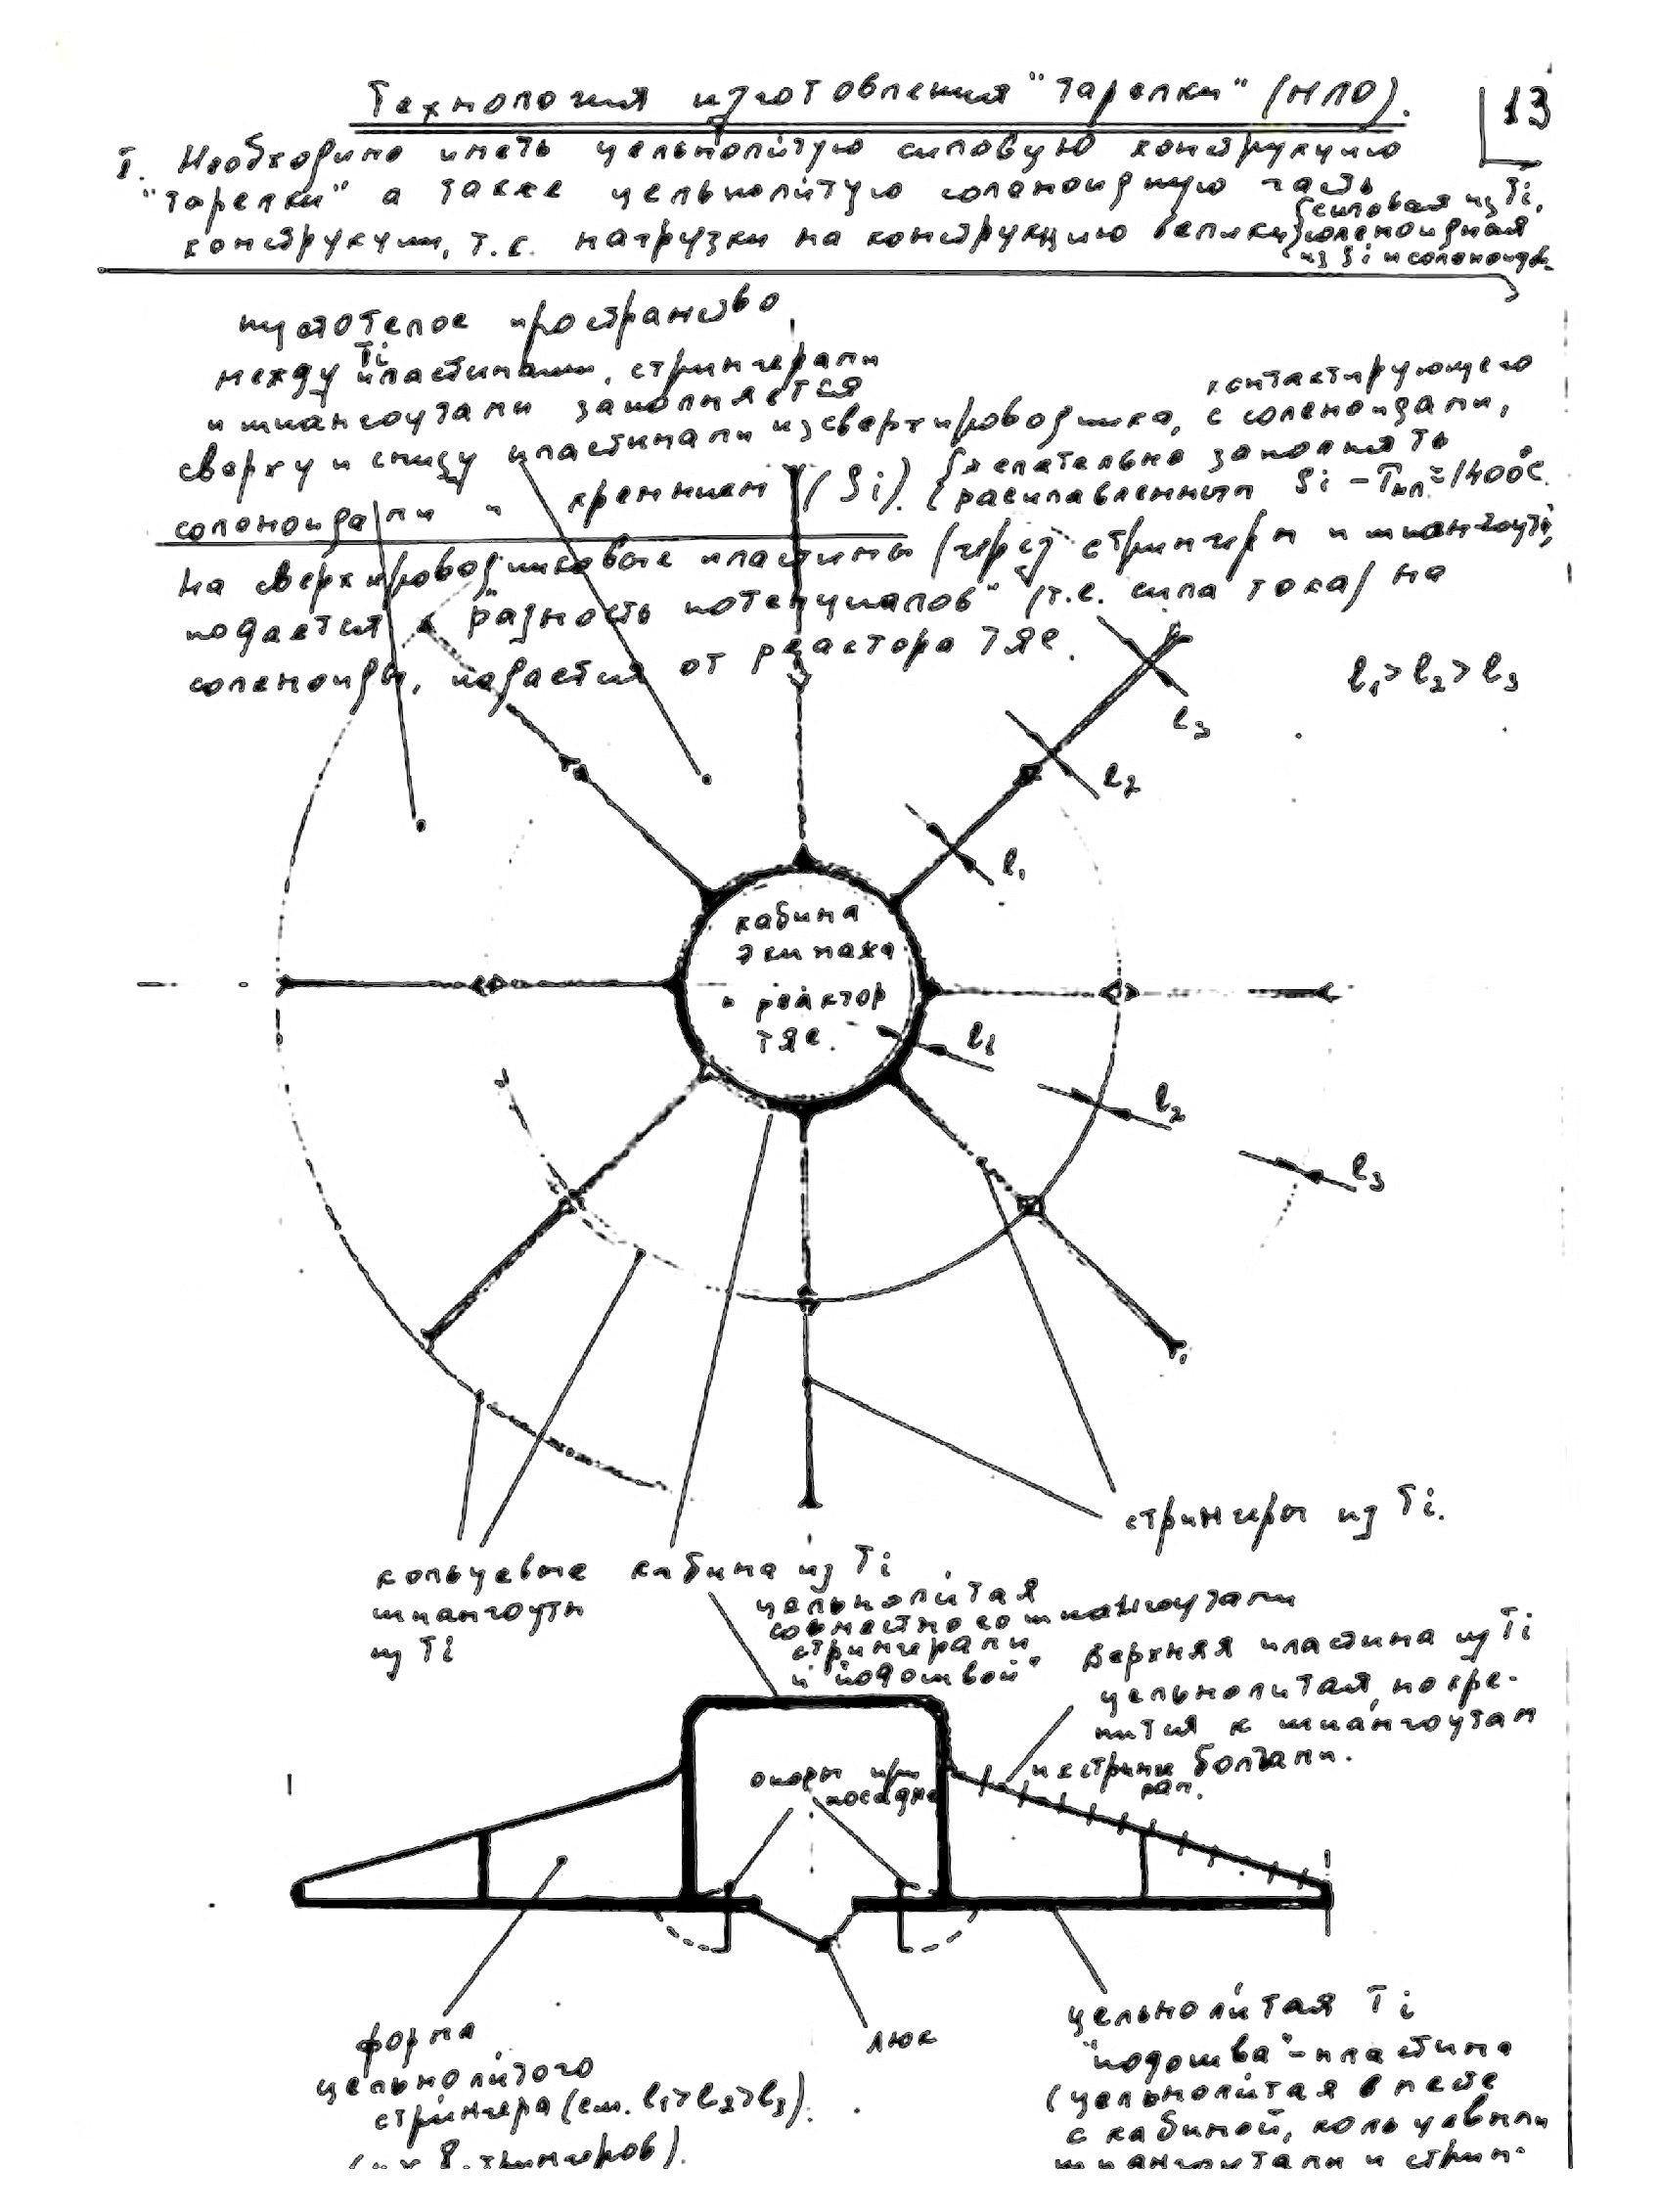 Технология изготовления "тарелки" (НЛО).
13
I. Необходимо иметь цельнолитую силовую конструкцию
"тарелки" а также цельнолитую соленоидную часть
{силовая из Ti,
конструкции, т.к. нагрузки на конструкцию велики
соленоидная
из Si и соленоида
пустотелое пространство
между Ti пластинами, стрингерами
и шпангоутами заполняется
контактирующего
сверху и снизу пластинами из сверхпроводника, с соленоидами,
соленоидами и кремнием (Si). {желательно заполнять
расплавленным Si - Tпл = 1400°C.
На сверхпроводниковые пластины (через стрингеры и шпангоуты)
подается "разность потенциалов" (т.е. сила тока) на
соленоиды, подается от реактора ТЯС.
l₁ > l₂ > l₃
l₃
l₂
l₁
кабина
экипажа
и реактор
ТЯС.
l₁
l₂
l₃
стрингеры из Ti.
кольцевые
шпангоуты
из Ti
кабина из Ti
цельнолитая
совместно со шпангоутами
стрингерами
и "подошвой"
верхняя пластина из Ti
цельнолитая, но кре-
пится к шпангоутам
и стринге
рам. болтами.
опоры при
посадке
форма
цельнолитого
стрингера (см. l₁>l₂>l₃).
(их 8 стрингеров).
люк
цельнолитая Ti
"подошва" - пластина
(цельнолитая вместе
с кабиной, кольцевыми
шпангоутами и стрин-